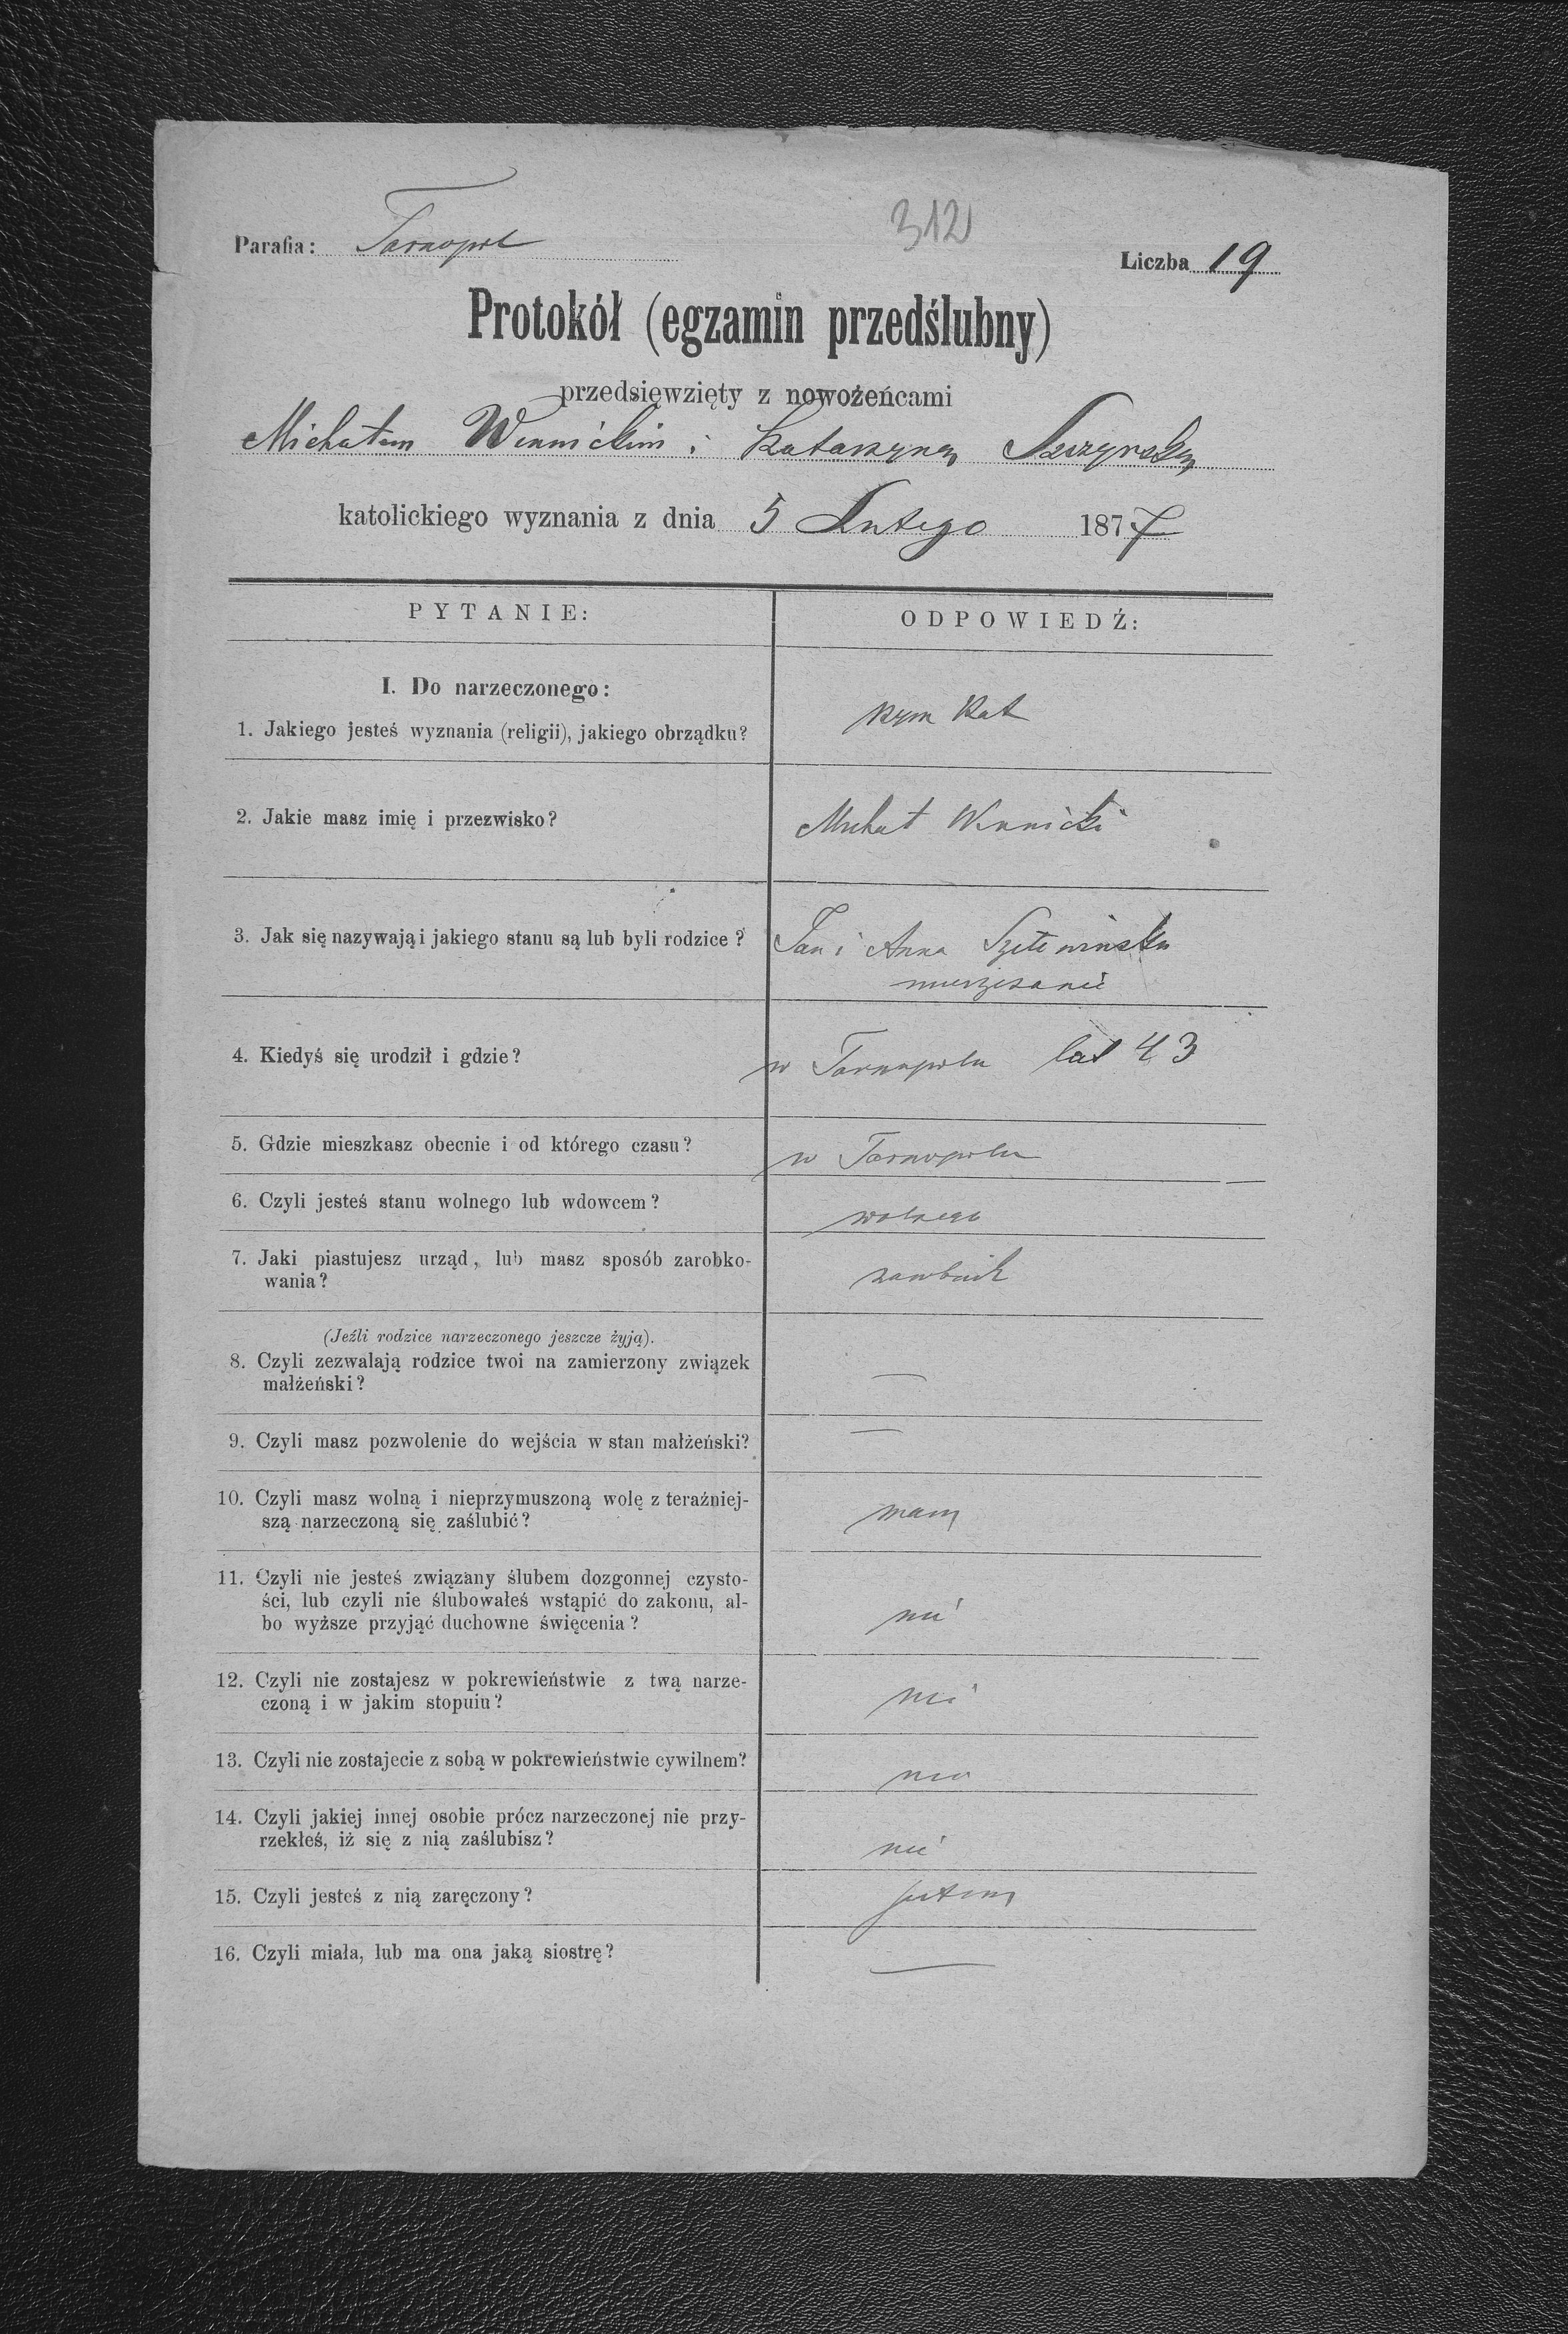 312
Parafia: Tarnopol
Liczba 19
Protokół (egzamin przedślubny)
przedsięwzięty z nowożeńcami
Michałem Winnickim i Katarzyną
katolickiego wyznania z dnia 5 Lutego 1877
PYTANIE:
ODPOWIEDŹ:
I. Do narzeczonego:
1. Jakiego jesteś wyznania (religii), jakiego obrządku?
rzym kat
2. Jakie masz imię i przezwisko?
Michał Winnicki
3. Jak się nazywają i jakiego stanu są lub byli rodzice?
Jan i Anna
4. Kiedyś się urodził i gdzie?
w Tarnopolu lat 43
5. Gdzie mieszkasz obecnie i od którego czasu?
w Tarnopolu
6. Czyli jesteś stanu wolnego lub wdowcem?
wolnego
7. Jaki piastujesz urząd, lub masz sposób zarobko-
wania?
zarobnik
(Jeźli rodzice narzeczonego jeszcze żyją).
8. Czyli zezwalają rodzice twoi na zamierzony związek
małżeński?
—
9. Czyli masz pozwolenie do wejścia w stan małżeński?
—
10. Czyli masz wolną i nieprzymuszoną wolę z teraźniej-
szą narzeczoną się zaślubić?
mam
11. Czyli nie jesteś związany ślubem dozgonnej czysto-
ści, lub czyli nie ślubowałeś wstąpić do zakonu, al-
bo wyższe przyjąć duchowne święcenia?
nie
12. Czyli nie zostajesz w pokrewieństwie z twą narze-
czoną i w jakim stopuiu?
nie
13. Czyli nie zostajecie z sobą w pokrewieństwie cywilnem?
nie
14. Czyli jakiej innej osobie prócz narzeczonej nie przy-
rzekłeś, iż się z nią zaślubisz?
nie
15. Czyli jesteś z nią zaręczony?
jestem
16. Czyli miała, lub ma ona jaką siostrę?
—